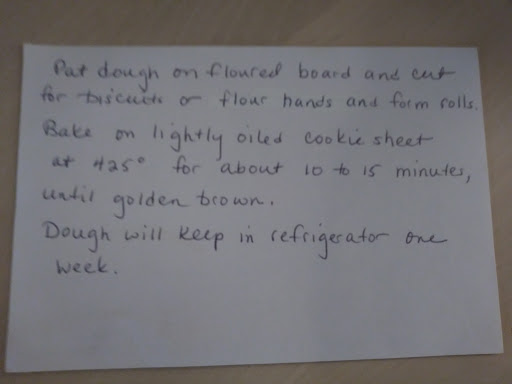 Pat dough on floured board and cut
for biscuits or flour hands and form rolls.
Bake on lightly oiled cookie sheet
at 425° for about 10 to 15 minutes,
until golden brown.
Dough will keep in refrigerator one
week.